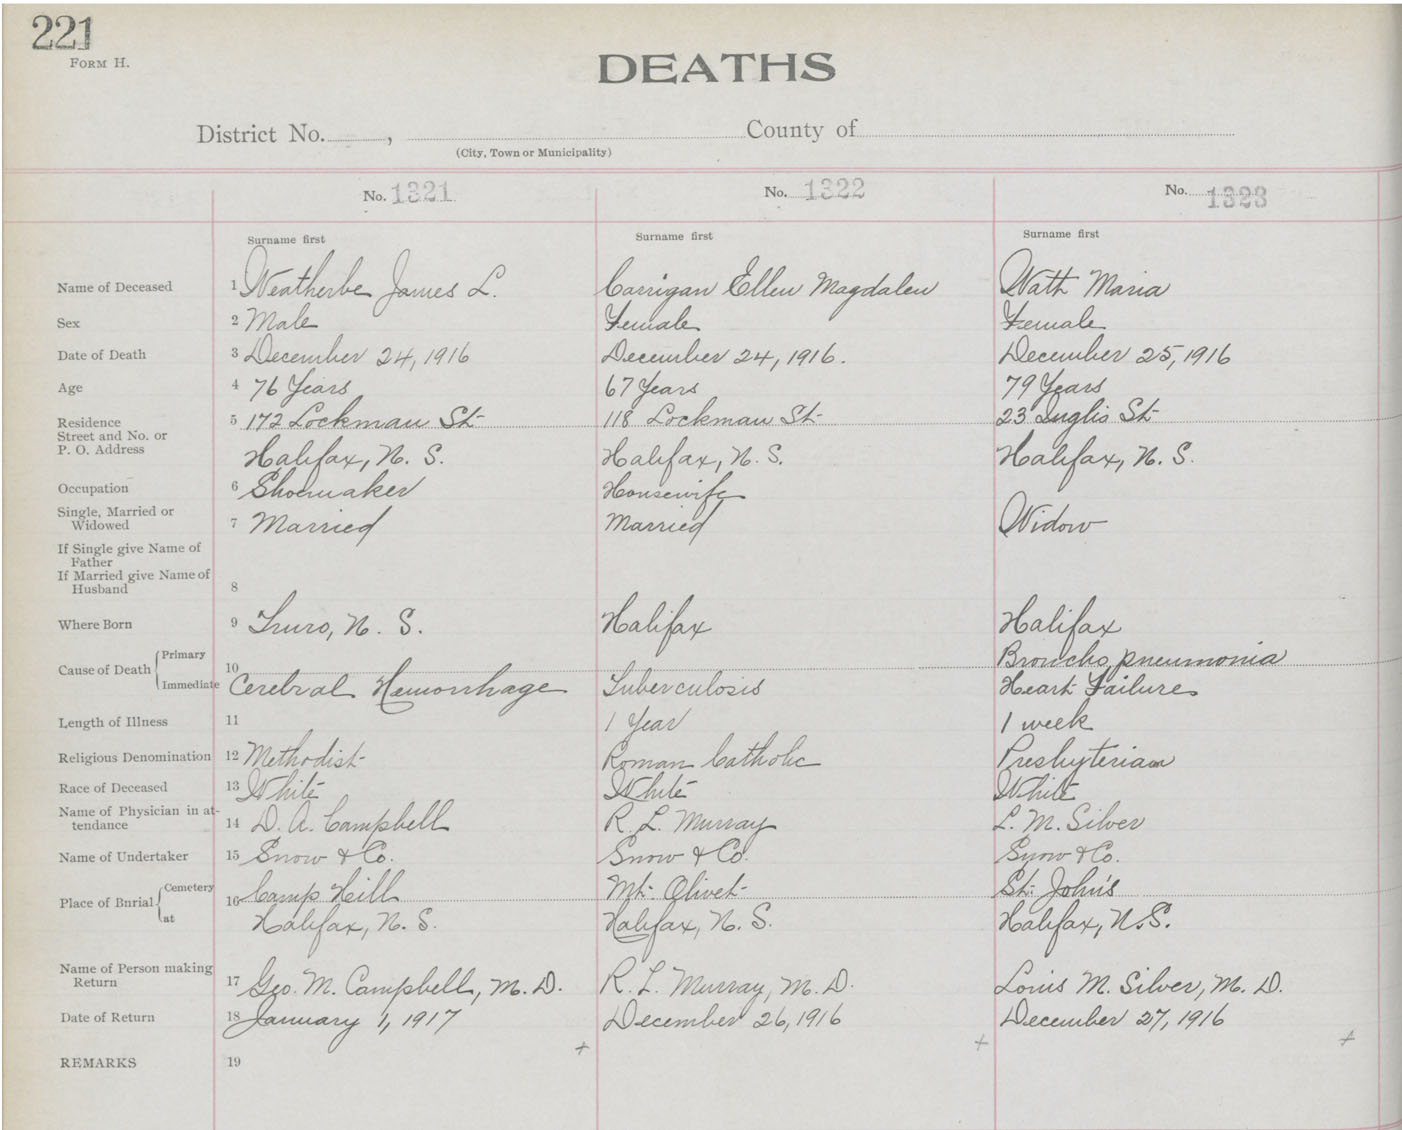 221
FORM H.
DEATHS
District No. , County of
(City, Town or Municipality)
No. 1321 No. 1322 No. 1323
Surname first Surname first Surname first
Name of Deceased 1 Weatherbe James L. Carrigan Ellen Magdalen Wath Maria
Sex 2 Male Female Female
Date of Death 3 December 24, 1916 December 24, 1916. December 25, 1916
Age 4 76 Years 67 Years 79 Years
Residence 5 172 Lockman St 118 Lockman St 23 Inglis St
Street and No. or
P. O. Address Halifax, N. S. Halifax, N. S. Halifax, N. S.
Occupation 6 Shoemaker Housewife
Single, Married or
Widowed 7 Married Married Widow
If Single give Name of
Father
If Married give Name of
Husband 8
Where Born 9 Truro, N. S. Halifax Halifax
Cause of Death Primary 10 Broncho pneumonia
Immediate Cerebral Hemorrhage Tuberculosis Heart Failure
Length of Illness 11 1 Year 1 week
Religious Denomination 12 Methodist Roman Catholic Presbyterian
Race of Deceased 13 White White White
Name of Physician in at-
tendance 14 D. A. Campbell R. L. Murray L. M. Silver
Name of Undertaker 15 Snow & Co. Snow & Co. Snow & Co.
Place of Burial Cemetery 16 Camp Hill Mt. Olivet St. John's
at Halifax, N. S. Halifax, N. S. Halifax, N. S.
Name of Person making
Return 17 Geo. M. Campbell, M. D. R. L. Murray, M. D. Louis M. Silver, M. D.
Date of Return 18 January 1, 1917 December 26, 1916 December 27, 1916
+ + +
REMARKS 19